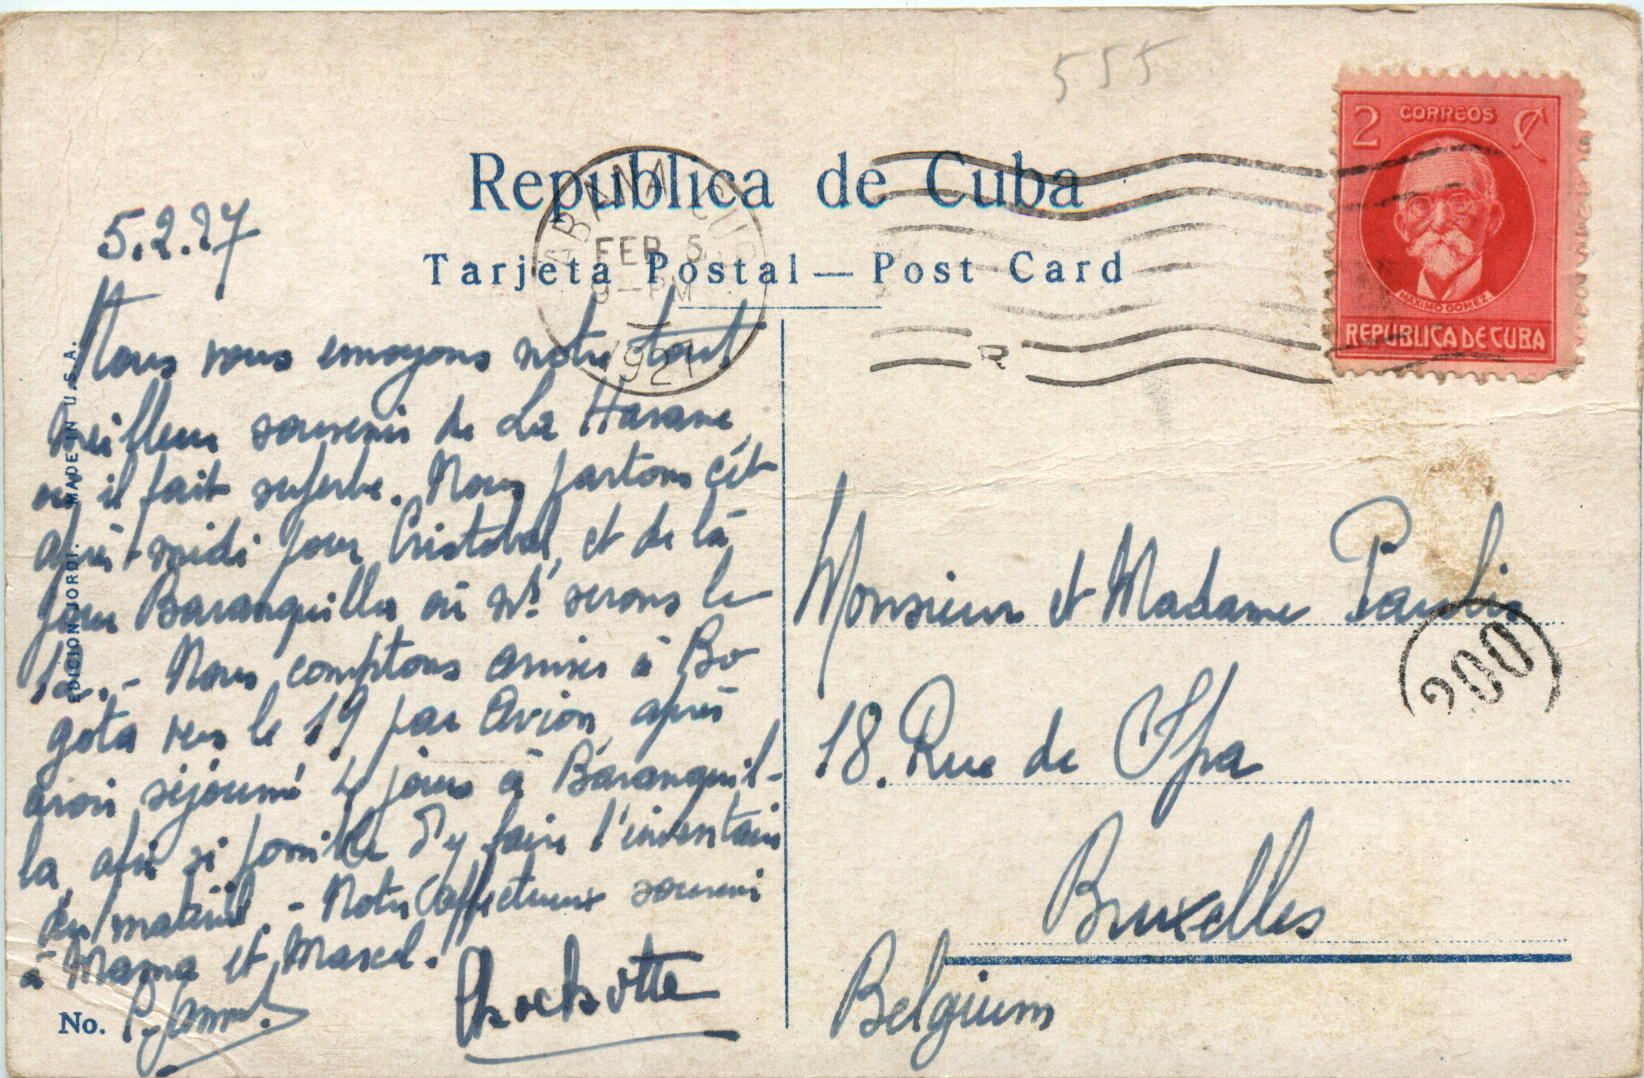 555
2 CORREOS ₵
MAXIMO GOMEZ.
REPUBLICA DE CUBA
Republica de Cuba
Tarjeta Postal — Post Card
HABANA CUBA
FEB 5
9-PM
1927
R
5.2.27
Nous vous envoyons notre tout
meilleur souvenir de La Havane
où il fait superbe. Nous partons cet
après-midi pour Cristobal, et de là
pour Baranquilla où ns serons le
12. - Nous comptons arriver à Bo
gota vers le 19 par avion, après
avoir séjourné 4 jours à Baranquil-
la, afin si possible d'y faire l'inventaire
du matériel. - Notre affectueux souvenir
à Mama et Marcel.
Chochotte
No.
EDICION JORDI. MADE IN U.S.A.
Monsieur et Madame Paulis
200
18. Rue de Spa
Bruxelles
Belgium